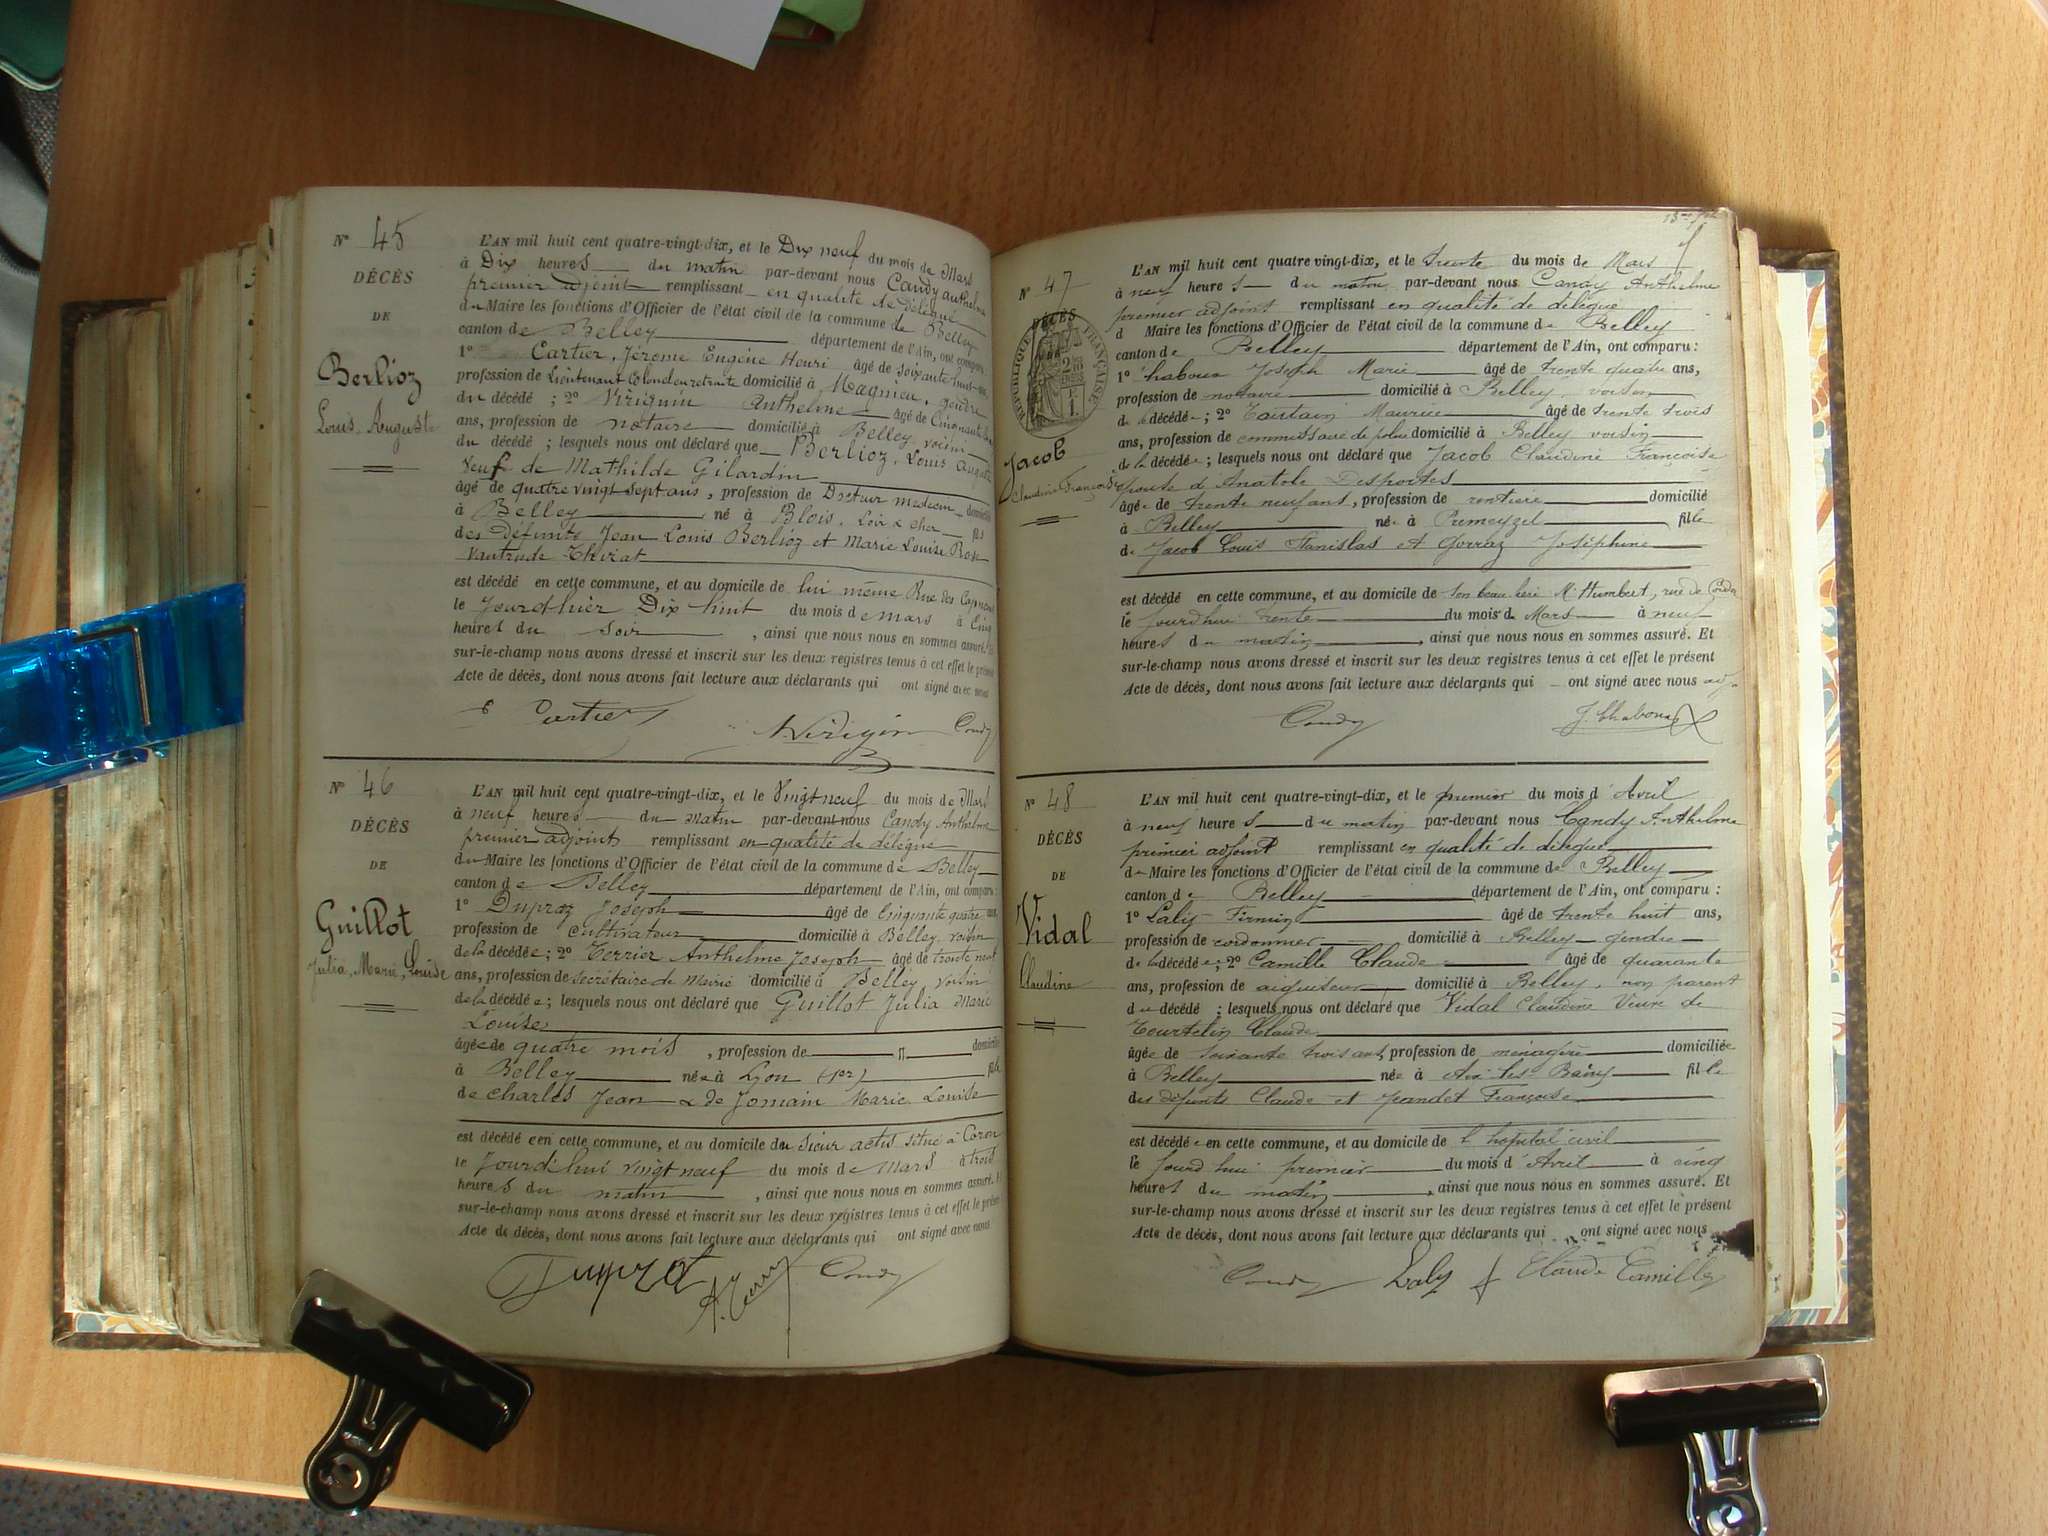 N° 45
DÉCÈS
DE
Berlioz
Louis, Auguste
L'AN mil huit cent quatre-vingt-dix, et le Dix neuf du mois de Mars
à Dix heures du matin par-devant nous Candy anthelme
premier adjoint remplissant en qualité de délégué
du Maire les fonctions d'Officier de l'état civil de la commune de Belley
canton de Belley département de l'Ain, ont comparu
1° Cartier, Jérome Eugène Henri âgé de soixante huit ans,
profession de Lieutenant Colonel en retraite domicilié à Magnieu, gendre
du décédé ; 2° Virignin Anthelme âgé de Cinquante
ans, profession de notaire domicilié à Belley, voisin
du décédé ; lesquels nous ont déclaré que Berlioz, Louis Auguste
Veuf de Mathilde Gilardin
âgé de quatre vingt sept ans, profession de Docteur medecin domicilié
à Belley né à Blois, Loir & Cher fils
des défunts Jean Louis Berlioz et Marie Louise Rose
Vautrude Thirat
est décédé en cette commune, et au domicile de lui même Rue des Capucins
le Jourd'hier Dix huit du mois de mars à Cinq
heures du soir , ainsi que nous nous en sommes assuré. Et
sur-le-champ nous avons dressé et inscrit sur les deux registres tenus à cet effet le présent
Acte de décès, dont nous avons fait lecture aux déclarants qui ont signé avec nous
E Cartier A. Virignin Candy
N° 46
DÉCÈS
DE
Guillot
Julia, Marie, Louise
L'AN mil huit cent quatre-vingt-dix, et le Vingt neuf du mois de Mars
à neuf heures du matin par-devant nous Candy Anthelme
premier adjoint remplissant en qualité de délégué
du Maire les fonctions d'Officier de l'état civil de la commune de Belley
canton de Belley département de l'Ain, ont comparu :
1° Dupraz Joseph âgé de Cinquante quatre ans,
profession de Cultivateur domicilié à Belley, voisin
de la décédée ; 2° Terrier Anthelme Joseph âgé de trente neuf
ans, profession de secrétaire de Mairie domicilié à Belley voisin
de la décédée ; lesquels nous ont déclaré que Guillot Julia Marie
Louise
âgée de quatre mois , profession de " domiciliée
à Belley née à Lyon (1er) fille
de Charles Jean & de Jomain Marie Louise
est décédée en cette commune, et au domicile du sieur situé à Coron
le Jourd'hui vingt neuf du mois de Mars à trois
heures du matin , ainsi que nous nous en sommes assuré. Et
sur-le-champ nous avons dressé et inscrit sur les deux registres tenus à cet effet le présent
Acte de décès, dont nous avons fait lecture aux déclarants qui ont signé avec nous
Candy
N° 47
DÉCÈS
RÉPUBLIQUE FRANÇAISE
Jacob
Claudine Françoise
L'AN mil huit cent quatre vingt-dix, et le trente du mois de Mars
à neuf heures du matin par-devant nous Candy Anthelme
premier adjoint remplissant en qualité de délégué
d Maire les fonctions d'Officier de l'état civil de la commune de Belley
canton de Belley département de l'Ain, ont comparu :
1° Chaboux Joseph Marie âgé de trente quatre ans,
profession de notaire domicilié à Belley, voisin
de la décédée ; 2° Maurice âgé de trente trois
ans, profession de commissaire de police domicilié à Belley voisin
de la décédée ; lesquels nous ont déclaré que Jacob Claudine Françoise
épouse d'Anatole Desportes
âgée de trente neuf ans, profession de rentière domicilié
à Belley née à Premeyzel fille
de Jacob Louis Stanislas et Gorraz Joséphine
est décédé en cette commune, et au domicile de son beau frère Mr Humbert, rue de
le jourd'hui trente du mois de Mars à neuf
heures du matin , ainsi que nous nous en sommes assuré. Et
sur-le-champ nous avons dressé et inscrit sur les deux registres tenus à cet effet le présent
Acte de décès, dont nous avons fait lecture aux déclarants qui ont signé avec nous
Candy J. Chaboux
N° 48
DÉCÈS
DE
Vidal
Claudine
L'AN mil huit cent quatre-vingt-dix, et le premier du mois d'Avril
à neuf heures du matin par-devant nous Candy Anthelme
premier adjoint remplissant en qualité de délégué
du Maire les fonctions d'Officier de l'état civil de la commune de Belley
canton de Belley département de l'Ain, ont comparu :
1° Laly Firmin âgé de trente huit ans,
profession de cordonnier domicilié à Belley gendre
de la décédée ; 2° Camille Claude âgé de quarante
ans, profession de aiguiseur domicilié à Belley, non parent
du décédé ; lesquels nous ont déclaré que Vidal Claudine Veuve de
Tourtelin Claude
âgée de soixante trois ans, profession de ménagère domiciliée
à Belley née à Aix les Bains fille
des défunts Claude et Jeandet Françoise
est décédée en cette commune, et au domicile de l'hopital civil
le jourd'hui premier du mois d'Avril à cinq
heures du matin , ainsi que nous nous en sommes assuré. Et
sur-le-champ nous avons dressé et inscrit sur les deux registres tenus à cet effet le présent
Acte de décès, dont nous avons fait lecture aux déclarants qui ont signé avec nous
Candy Laly f Claude Camille